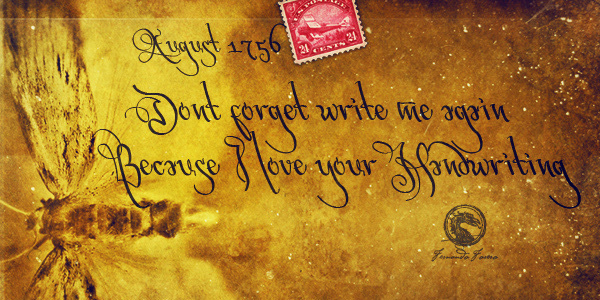 August 1756
U.S. POSTAGE
24 24
CENTS
Dont forget write me again
Because I love your Handwriting